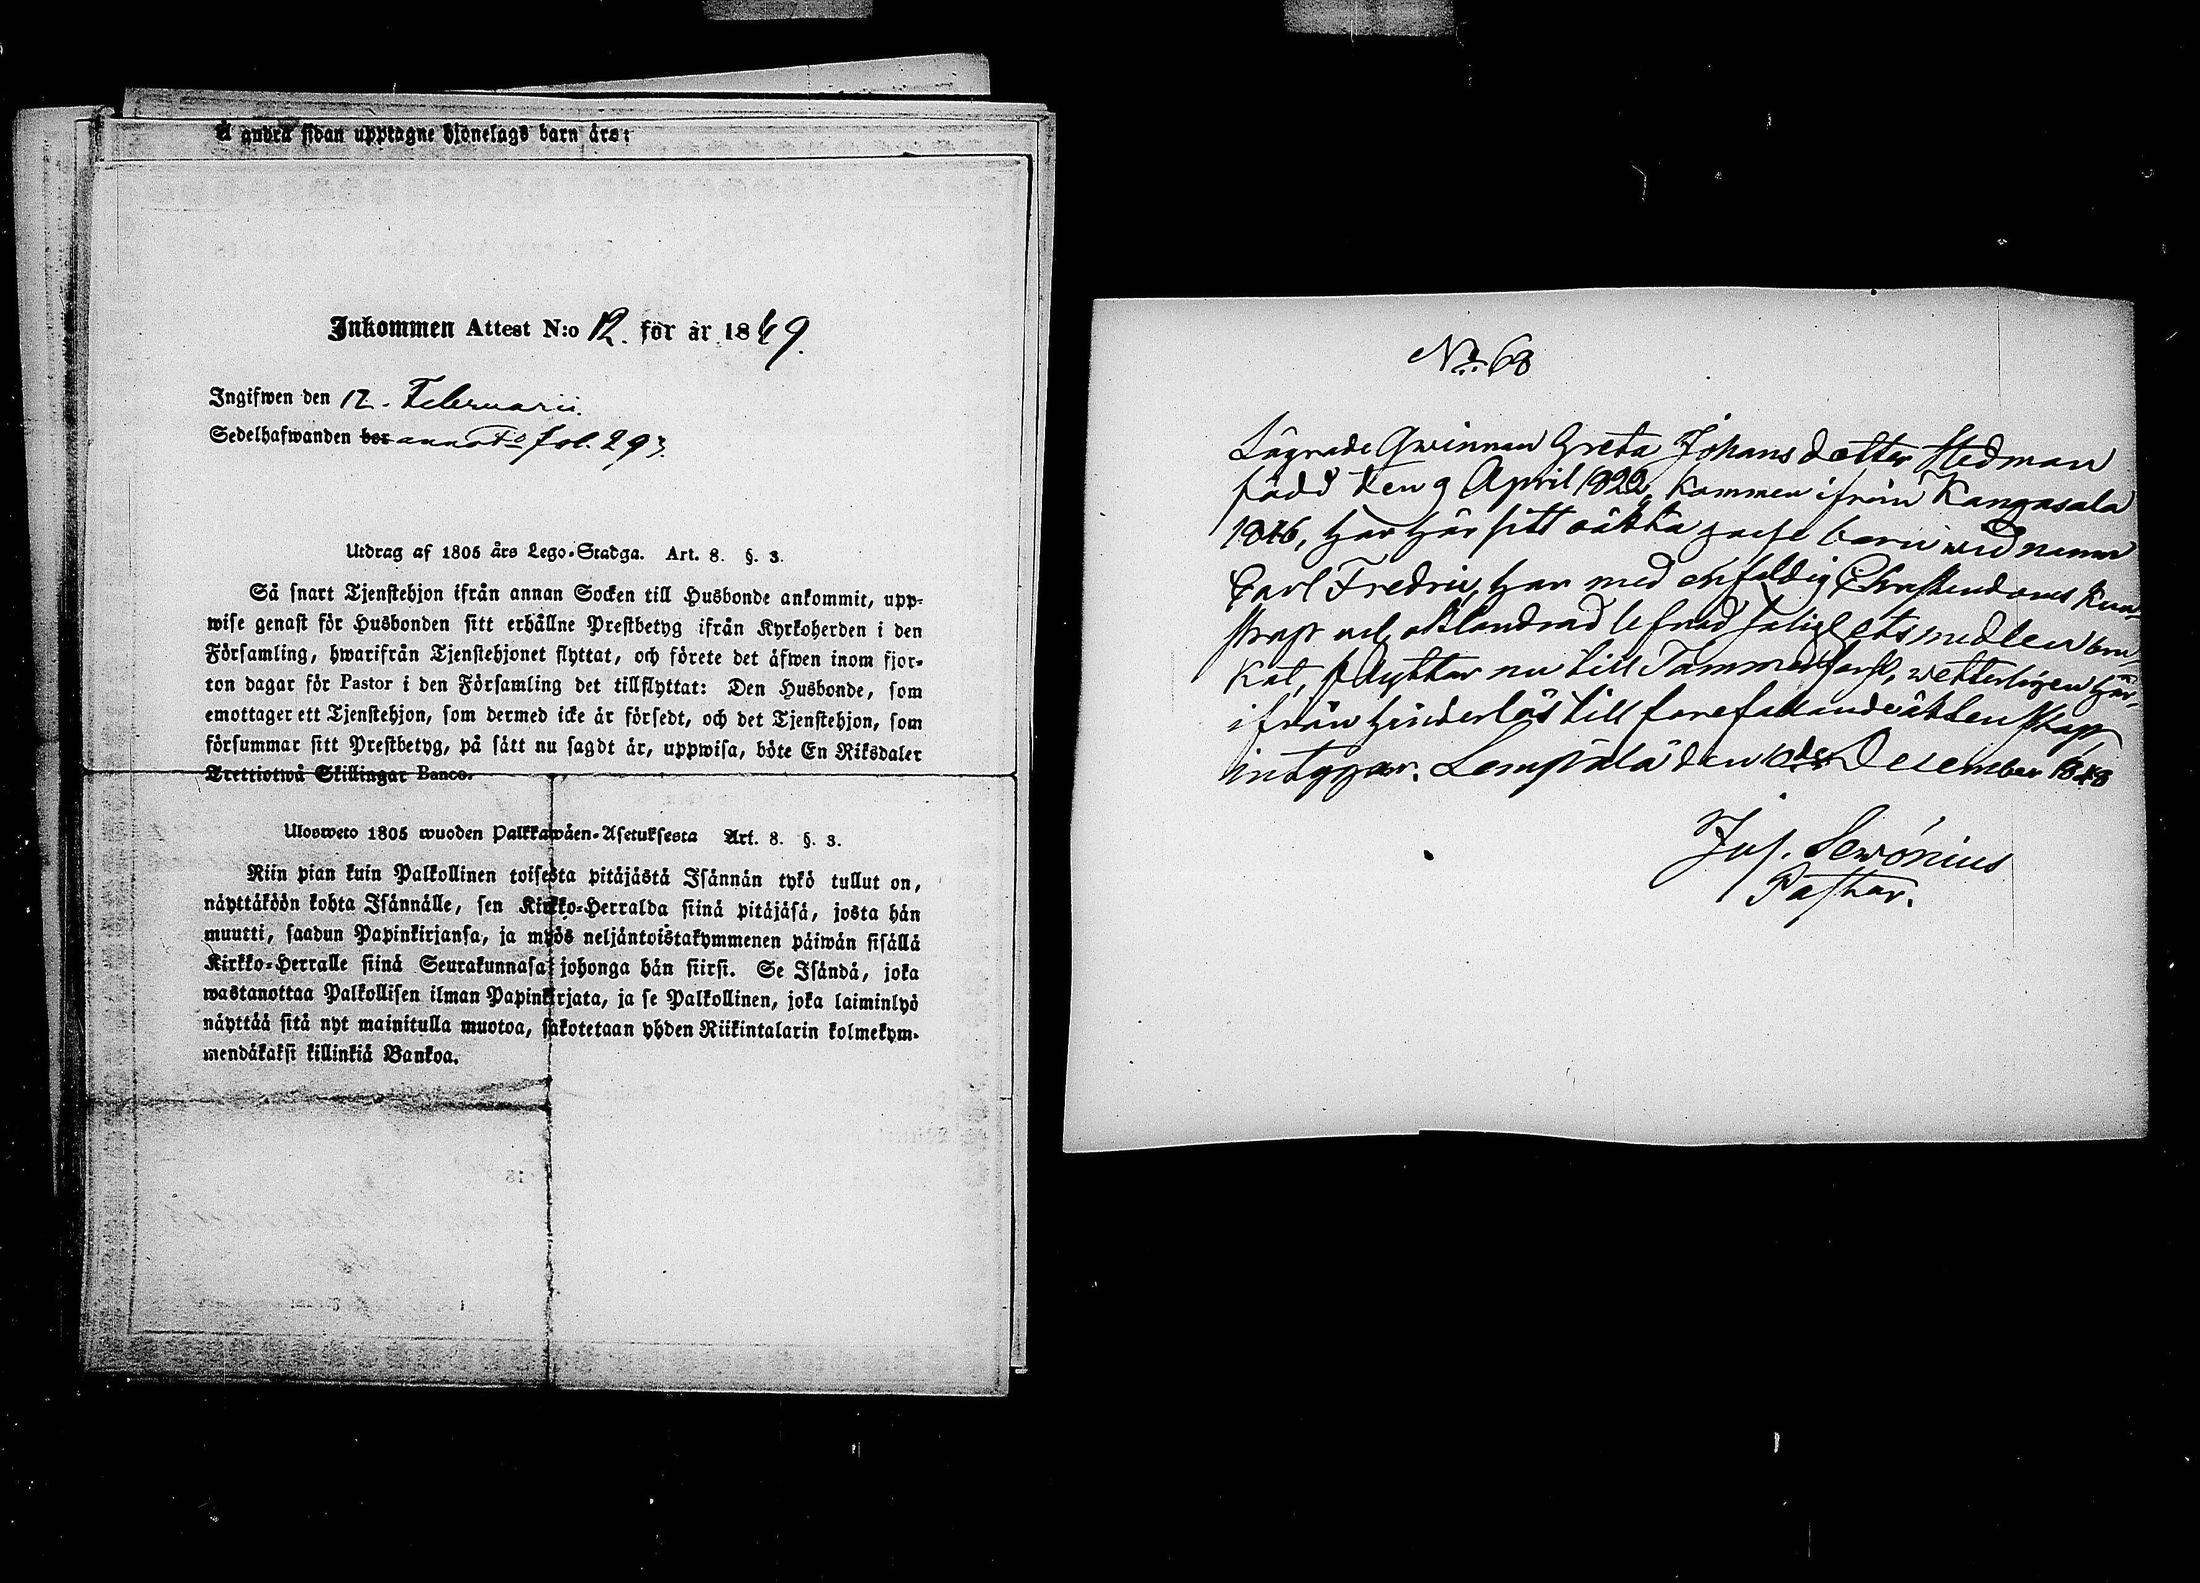 Å andra sidan upptagne hjonelags barn äro:
Inkommen Attest N:o 12. för år 1849.
Ingifwen den 12. Februarii.
Sedelhafwanden bor annot. fol. 293.
Utdrag af 1805 års Lego-Stadga. Art. 8. §. 3.
Så snart Tjenstehjon ifrån annan Socken till Husbonde ankommit, upp-
wise genast för Husbonden sitt erhållne Prestbetyg ifrån Kyrkoherden i den
Församling, hwarifrån Tjenstehjonet flyttat, och förete det äfwen inom fjor-
ton dagar för Pastor i den Församling det tillflyttat: Den Husbonde, som
emottager ett Tjenstehjon, som dermed icke är försedt, och det Tjenstehjon, som
försummar sitt Prestbetyg, på sätt nu sagdt är, uppwisa, böte En Riksdaler
Trettiotwå Skillingar Banco.
Ulosweto 1805 wuoden Palkkawäen-Asetuksesta Art. 8. §. 3.
Niin pian kuin Palkollinen toisesta pitäjästä Isännän tykö tullut on,
näyttäköön kohta Isännälle, sen Kirkko-Herralda siinä pitäjäsä, josta hän
muutti, saadun Papinkirjansa, ja myös neljäntoistakymmenen päiwän sisällä
Kirkko-Herralle siinä Seurakunnasa johonga hän siirsi. Se Isändä, joka
wastanottaa Palkollisen ilman Papinkirjata, ja se Palkollinen, joka laiminlyö
näyttää sitä nyt mainitulla muotoa, sakotetaan yhden Riikintalarin kolmekym-
mendäkaksi killinkiä Bankoa.
No 68
Lägrade Qwinnan Greta Johansdotter Stedman
född den 9 April 1822, kommen ifrån Kangasala
1846, har här sitt oäkta gosse barn wid namn
Carl Fredric, har med enfaldig Christendoms kun-
skap och oklandrad lefnad salighets medlen bru-
kat, flyttar nu till Tammerfors, wetterligen här-
ifrån hinderlös till förefallande äktenskap
intygar. Lempälä den 10de December 1848
Jos. Sewónius
Pastor.